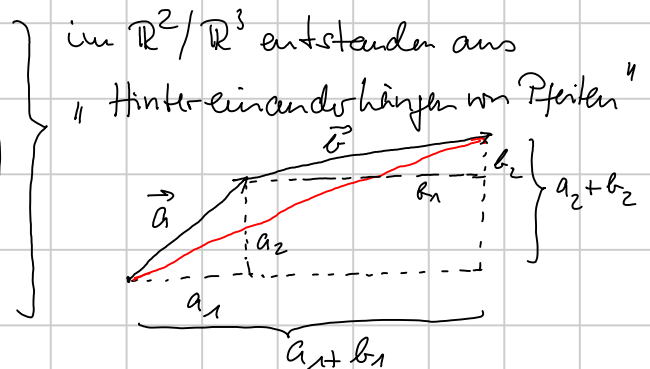 im ℝ²/ℝ³ entstanden aus
„Hintereinanderhängen von Pfeilen"
b⃗
b₂
a₂+b₂
a⃗
b₁
a₂
a₁
a₁+b₁